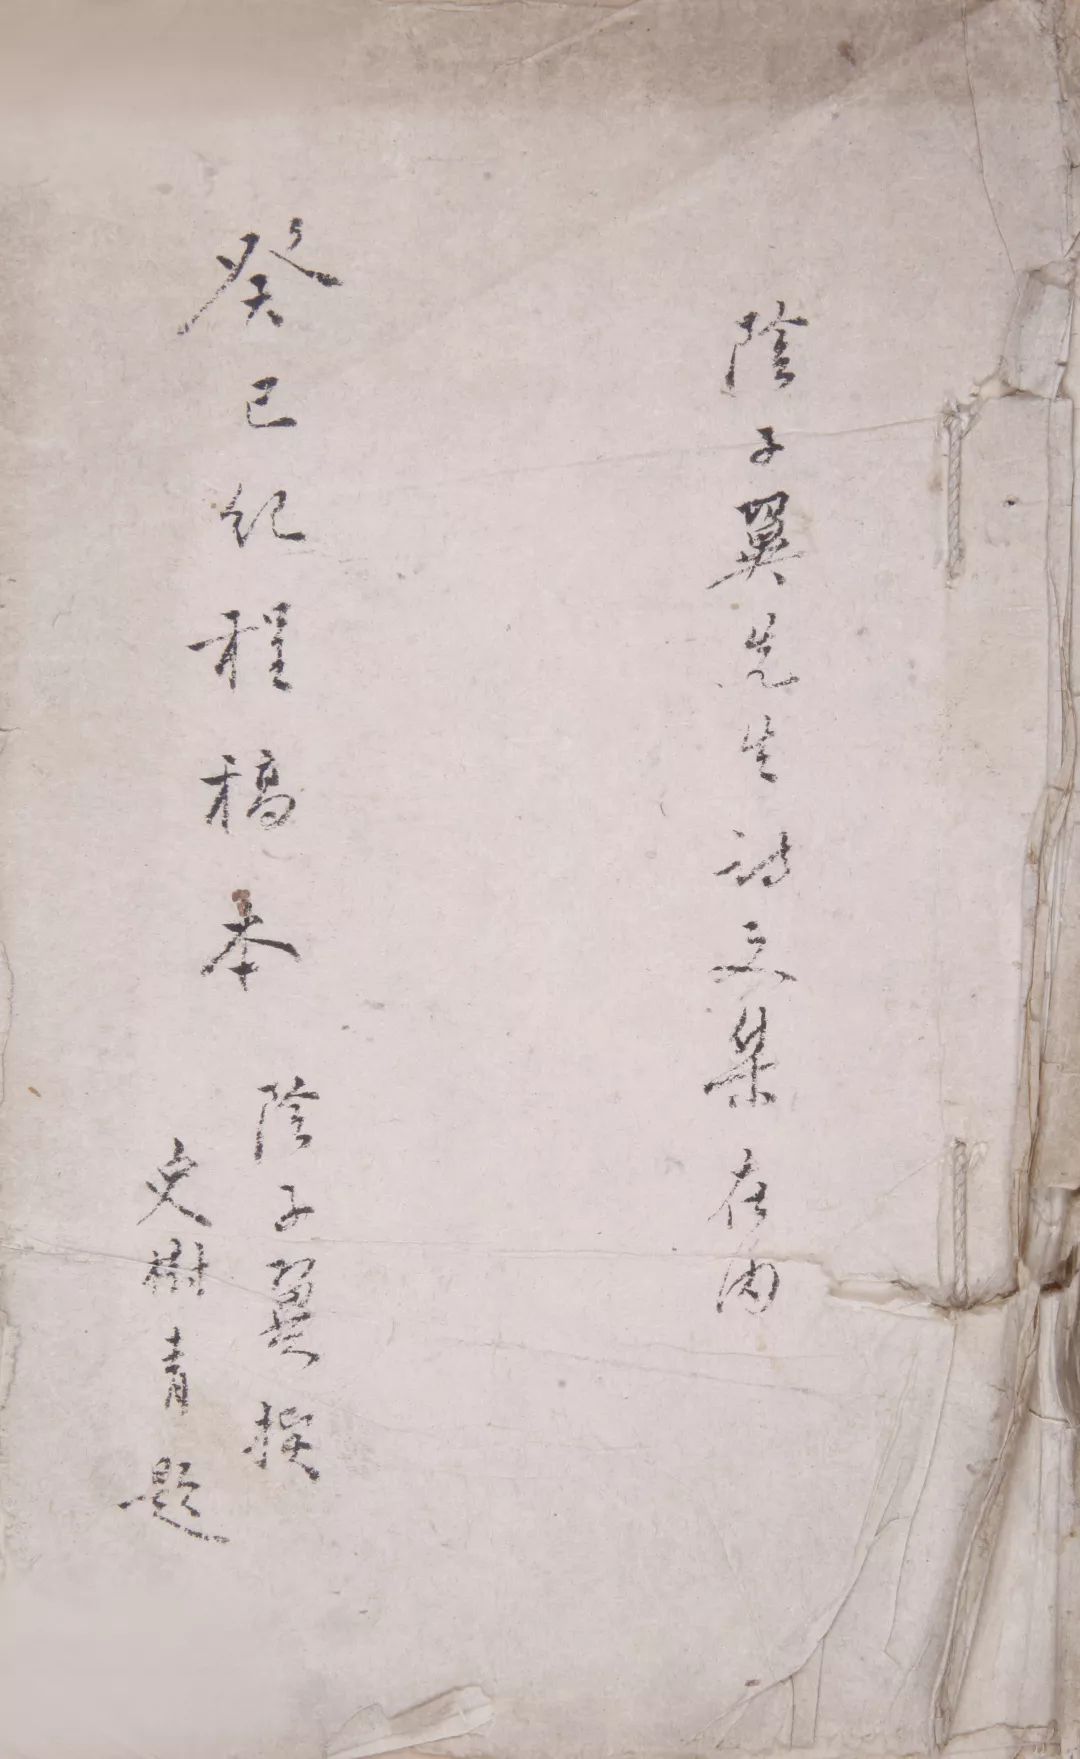 陰子翼先生詩文集在內
癸巳紀程稿本
陰子翼撰
史樹青題